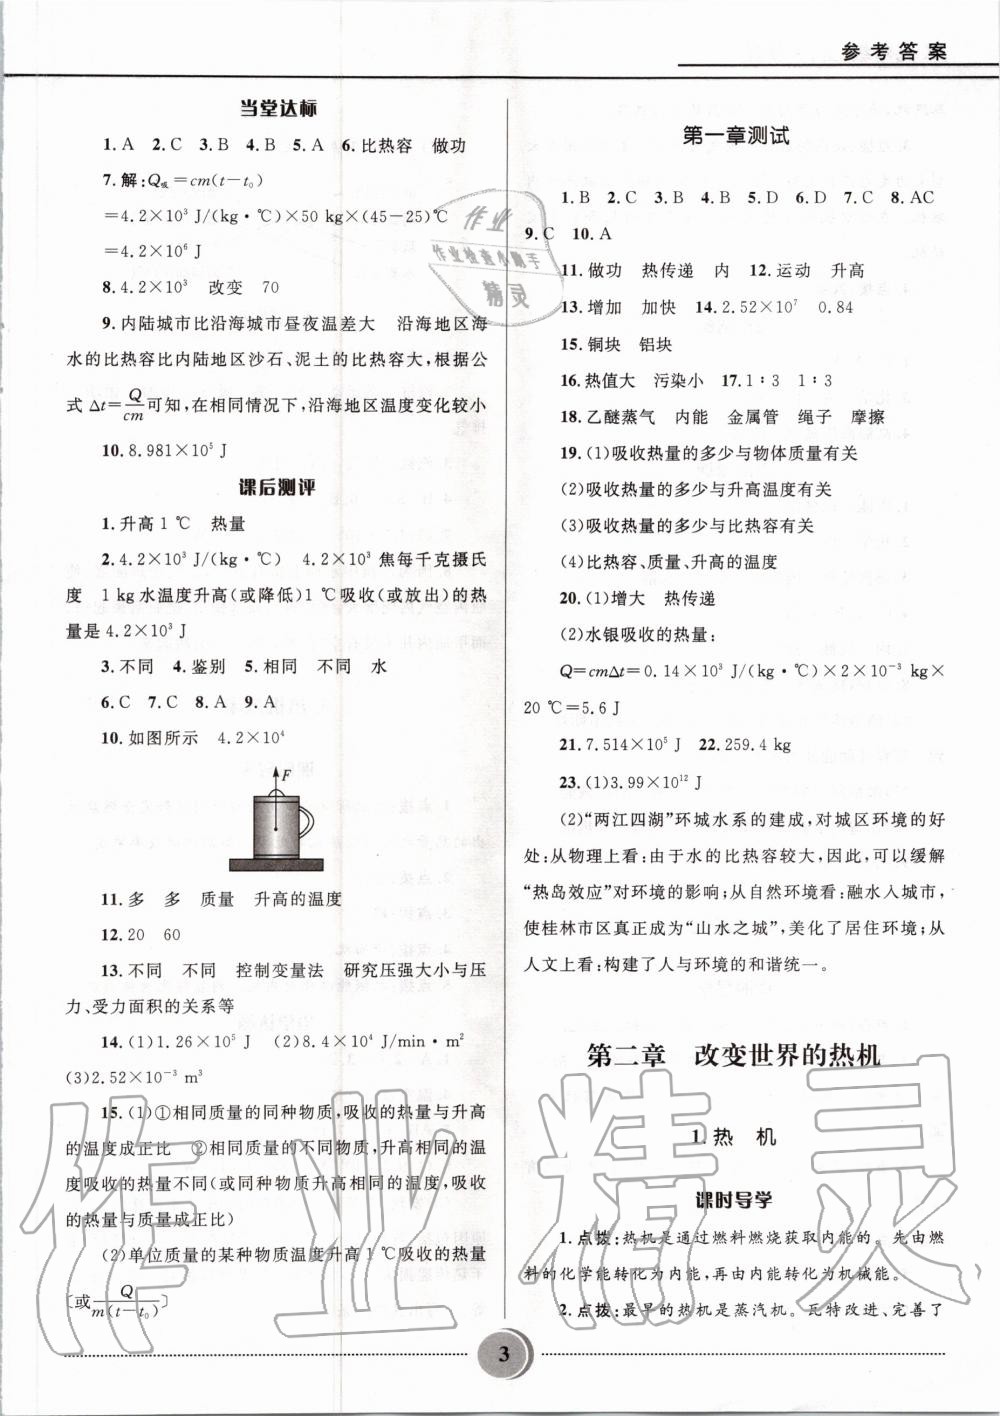 参考答案
当堂达标
1. A 2. C 3. B 4. B 5. A 6. 比热容 做功
7. 解:Q吸=cm(t-t₀)
=4.2×10³ J/(kg·℃)×50 kg×(45-25)℃
=4.2×10⁶ J
8. 4.2×10³ 改变 70
9. 内陆城市比沿海城市昼夜温差大 沿海地区海
水的比热容比内陆地区沙石、泥土的比热容大,根据公
式 Δt=Q/cm可知,在相同情况下,沿海地区温度变化较小
10. 8.981×10⁵ J
课后测评
1. 升高1 ℃ 热量
2. 4.2×10³ J/(kg·℃) 4.2×10³ 焦每千克摄氏
度 1 kg水温度升高(或降低)1 ℃吸收(或放出)的热
量是 4.2×10³ J
3. 不同 4. 鉴别 5. 相同 不同 水
6. C 7. C 8. A 9. A
10. 如图所示 4.2×10⁴
F
11. 多 多 质量 升高的温度
12. 20 60
13. 不同 不同 控制变量法 研究压强大小与压
力、受力面积的关系等
14. (1)1.26×10⁵ J (2)8.4×10⁴ J/min·m²
(3)2.52×10⁻³ m³
15. (1)①相同质量的同种物质,吸收的热量与升高
的温度成正比 ②相同质量的不同物质,升高相同的温
度吸收的热量不同(或同种物质升高相同的温度,吸收
的热量与质量成正比)
(2)单位质量的某种物质温度升高1 ℃吸收的热量
〔或Q/m(t-t₀)〕
第一章测试
1. B 2. C 3. B 4. B 5. D 6. D 7. C 8. AC
9. C 10. A
11. 做功 热传递 内 12. 运动 升高
13. 增加 加快 14. 2.52×10⁷ 0.84
15. 铜块 铝块
16. 热值大 污染小 17. 1∶3 1∶3
18. 乙醚蒸气 内能 金属管 绳子 摩擦
19. (1)吸收热量的多少与物体质量有关
(2)吸收热量的多少与升高温度有关
(3)吸收热量的多少与比热容有关
(4)比热容、质量、升高的温度
20. (1)增大 热传递
(2)水银吸收的热量:
Q=cmΔt=0.14×10³ J/(kg·℃)×2×10⁻³ kg×
20 ℃=5.6 J
21. 7.514×10⁵ J 22. 259.4 kg
23. (1)3.99×10¹² J
(2)“两江四湖”环城水系的建成,对城区环境的好
处:从物理上看:由于水的比热容较大,因此,可以缓解
“热岛效应”对环境的影响;从自然环境看:融水入城市,
使桂林市区真正成为“山水之城”,美化了居住环境;从
人文上看:构建了人与环境的和谐统一。
第二章 改变世界的热机
1. 热 机
课时导学
1. 点拨:热机是通过燃料燃烧获取内能的。先由燃
料的化学能转化为内能,再由内能转化为机械能。
2. 点拨:最早的热机是蒸汽机。瓦特改进、完善了
3
作业
作业检查小助手
精灵
作业精灵